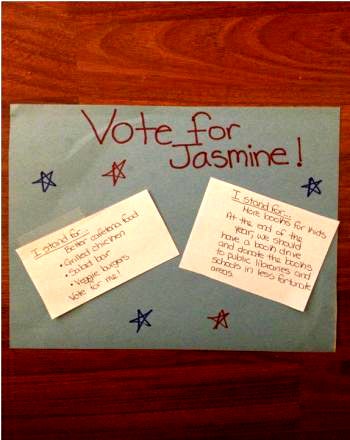 Vote for
Jasmine!
I stand for...
Better cafeteria food
• Grilled chicken
• Salad bar
• Veggie burgers
Vote for me!
I stand for...
More books for kids
At the end of the
year, we should
have a book drive
and donate the books
to public libraries and
schools in less fortunate
areas.